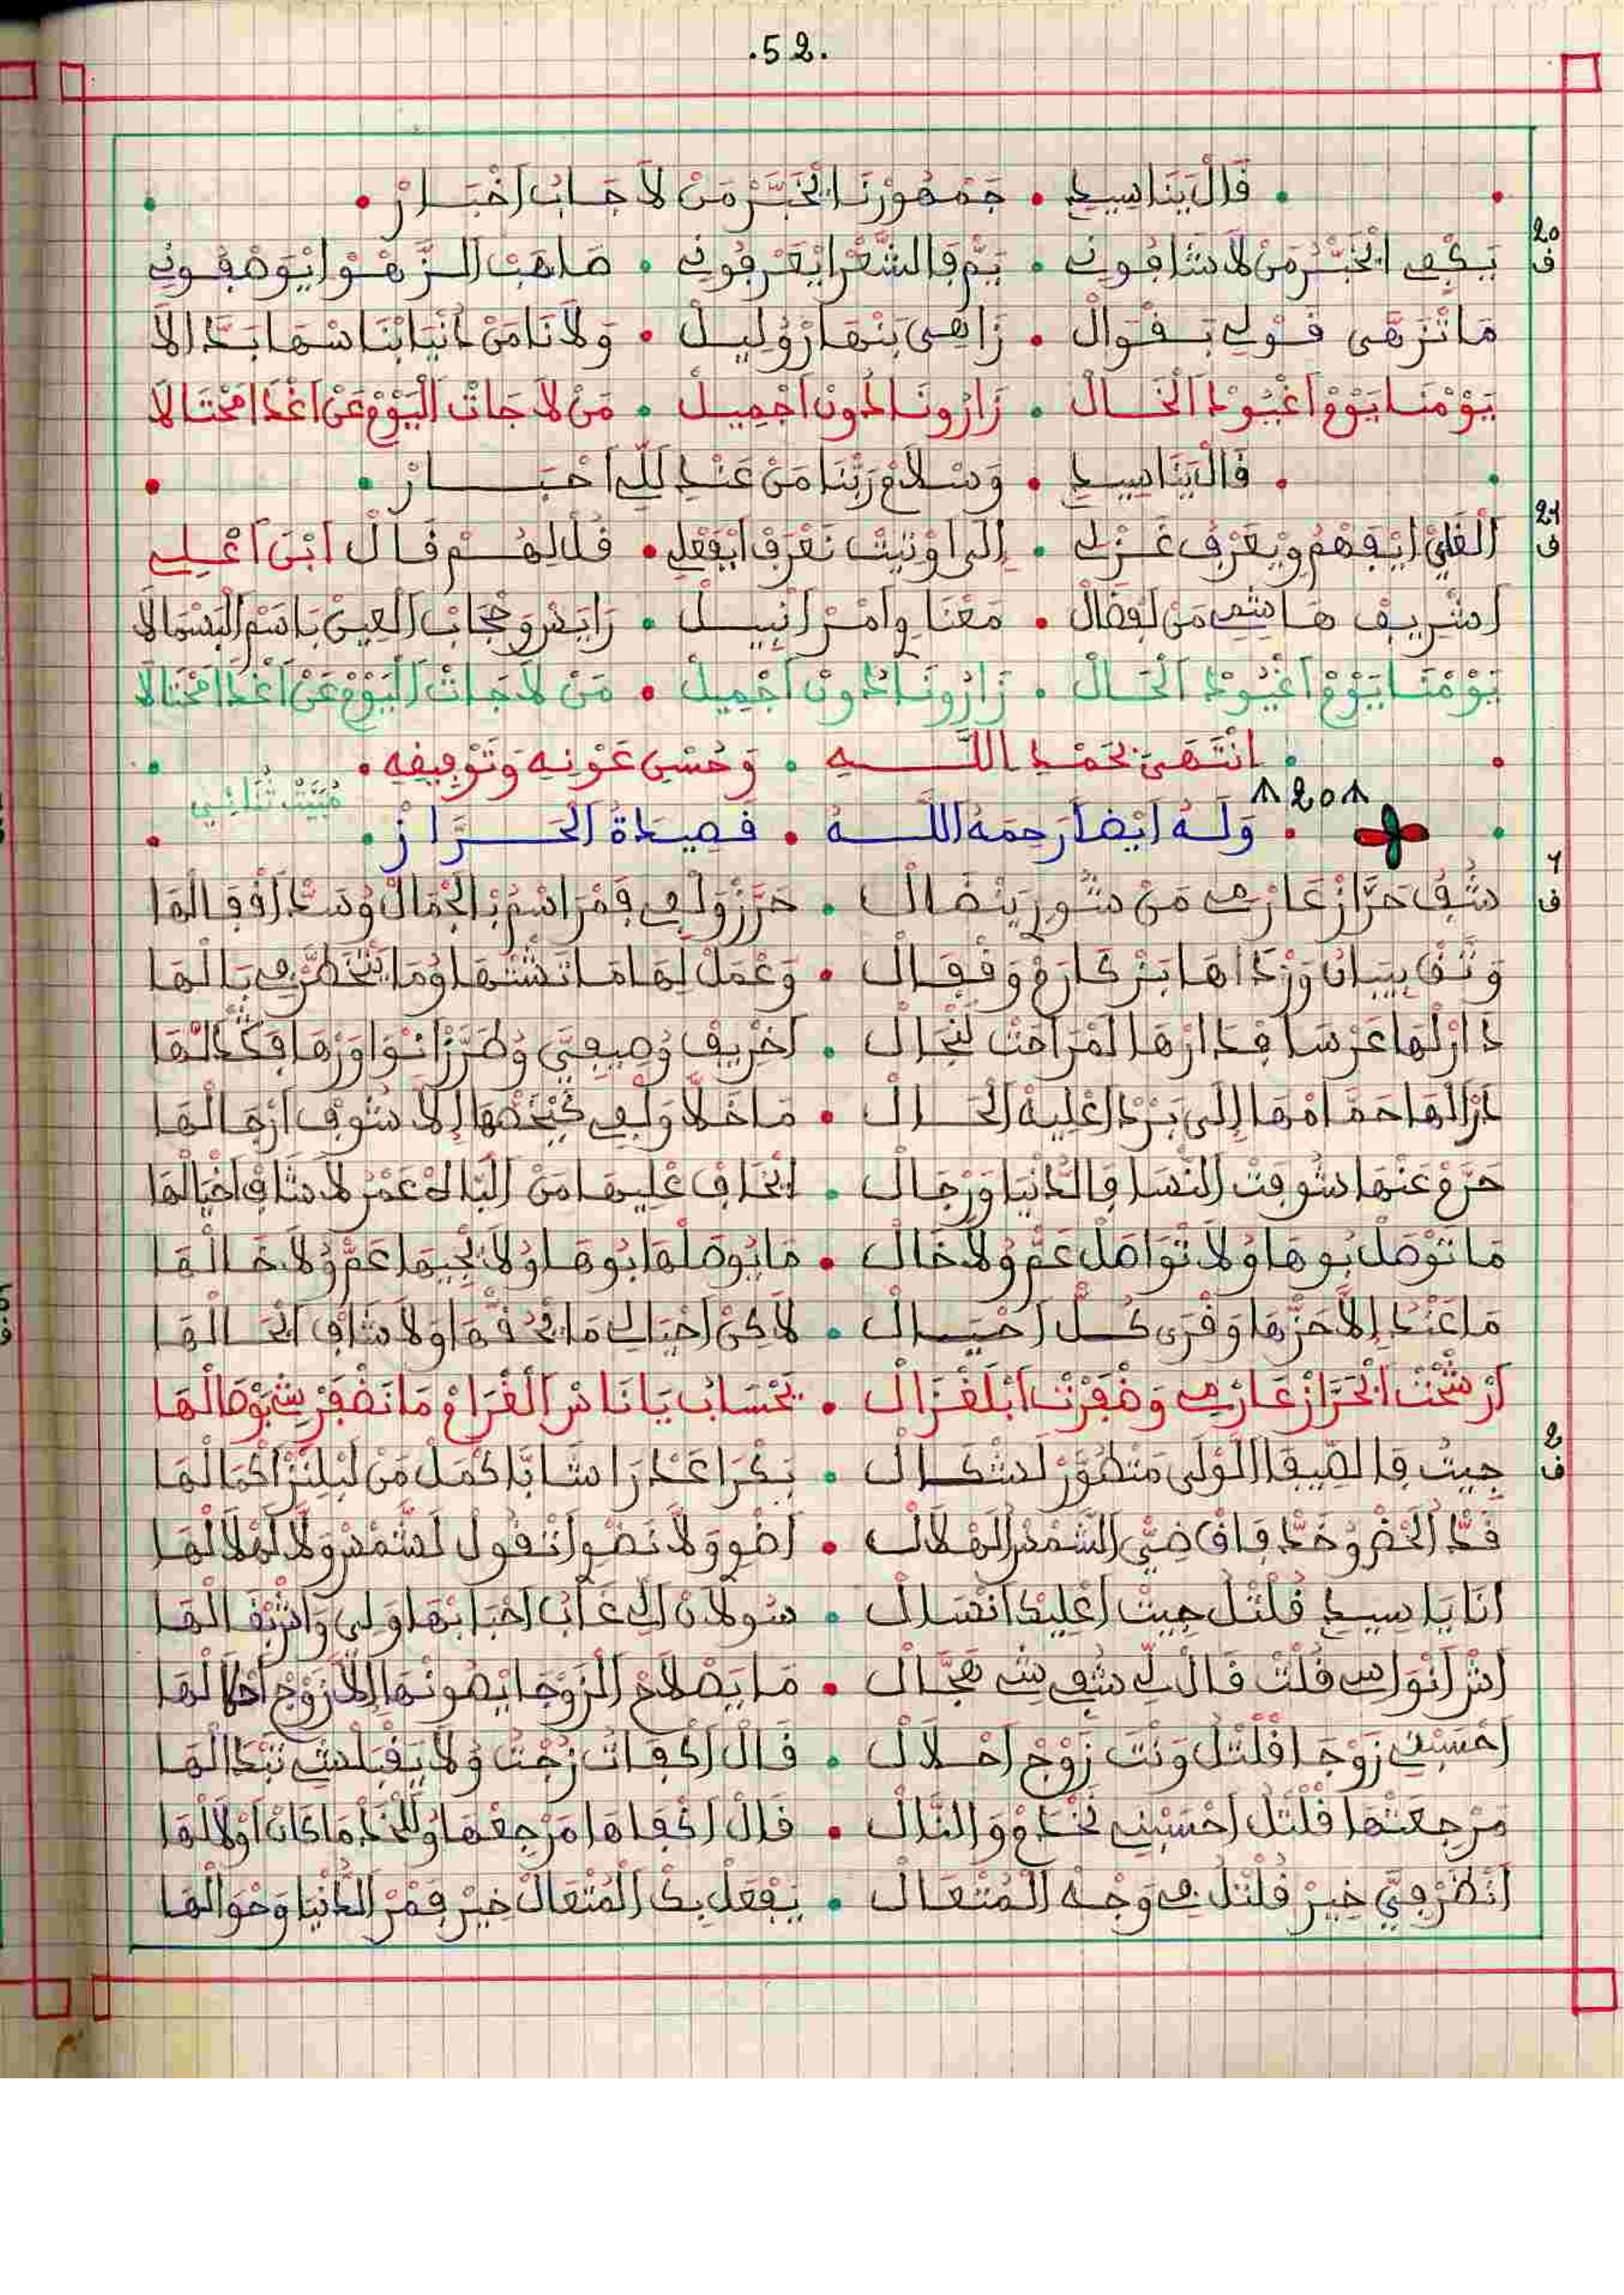 .52.
قال يناسيدي • جمهورنا الخبر من لا جاب اخبار
20 ف
يكفي الخبر من لا شافوني • يم فالشعر ايعرفوني • صاهب الزهو ايوصفوني
ما نزهى قولي بقوال • زاهي بنهار وليل • ولانا من دنيا بناسها بدالا
يومنا يوم اغيود الخال • زارونا دون اجميل • من لا جات اليوم عن اغدا محتالا
قال يناسيدي • وسلام ربنا من عندي للحبار
21 ف
ايفهم ويعرف غزلي • نعرف ايفعلي • قل لهم قال ابن اعلي
اشريف هاشمي من لفضال • معنا وامرا نبيل • حجاب العين باسم البسمالا
يومنا يوم اغيود الخال • زارونا دون اجميل • من لا جات اليوم عن اغدا محتالا
انتهى بحمد الله • وحسن عونه وتوفيقه
مبيت ثنائي
208
وله ايضا رحمه الله • قصيدة الحراز
1 ف
شف حراز عارم من شور ينضال • حرز ولفي قمر اسم بالجمال وسد اقفالها
وثق بيبان ورداها بزكارم وقفال • وعمل لها ما تشتها وما يتخطر في بالها
دار لها عرسا فدارها لمراحت لنجال • اخريف وصيفي وطرز انوا ورها فكدالها
دار الها حمامها الى برد اعليه الحال • ما خلا ولفي كيخصها الا شوف ارجالها
حرم عنها شوفت النسا فالدنيا ورجال • ايخاف عليها من البالي عمر لا شاف اخيالها
ما توصل بوها ولا تواصل عم ولا خال • ما يوصلها بوها ولا يجيها عم ولا خالها
ما عندو الا حزها وقرى كل احيال • لاكن احيالي ما يحقها ولا شاف الحالها
ارشخت الحراز عارم وضفرت ابلغزال • بحساب يا ناس الغرام ما نضفرشي بوصالها
2 ف
جيت فالصيفا اللولى متطور لشكال • بكرا عدرا شابا كمل من ليلتز اكمالها
قد الخضر وخد فاق ضي الشمس الهلال • اضو ولا نضوا تقول لشمس ولا لهلالها
انا يا سيدي قلتل جيت اعليك انسال • سولان الي غاب احبابها ولي واشبقالها
اش انواسي قلت قال لي شفي شي هجال • ما يصلاح الزوجا يصونها الا زوج احلالها
احسبني زوجا قلتل ونت زوج احلال • قال اكفات زجت ولا يقبلشي تبدالها
مرجعتها قلتل احسبني نخدم والنال • قال اكفاها مرجعها وللخدما كان اولالها
انظر في خير قلتل في وجه المتعال • يفعل بك المتعال خير قمر الدنيا وحوالها